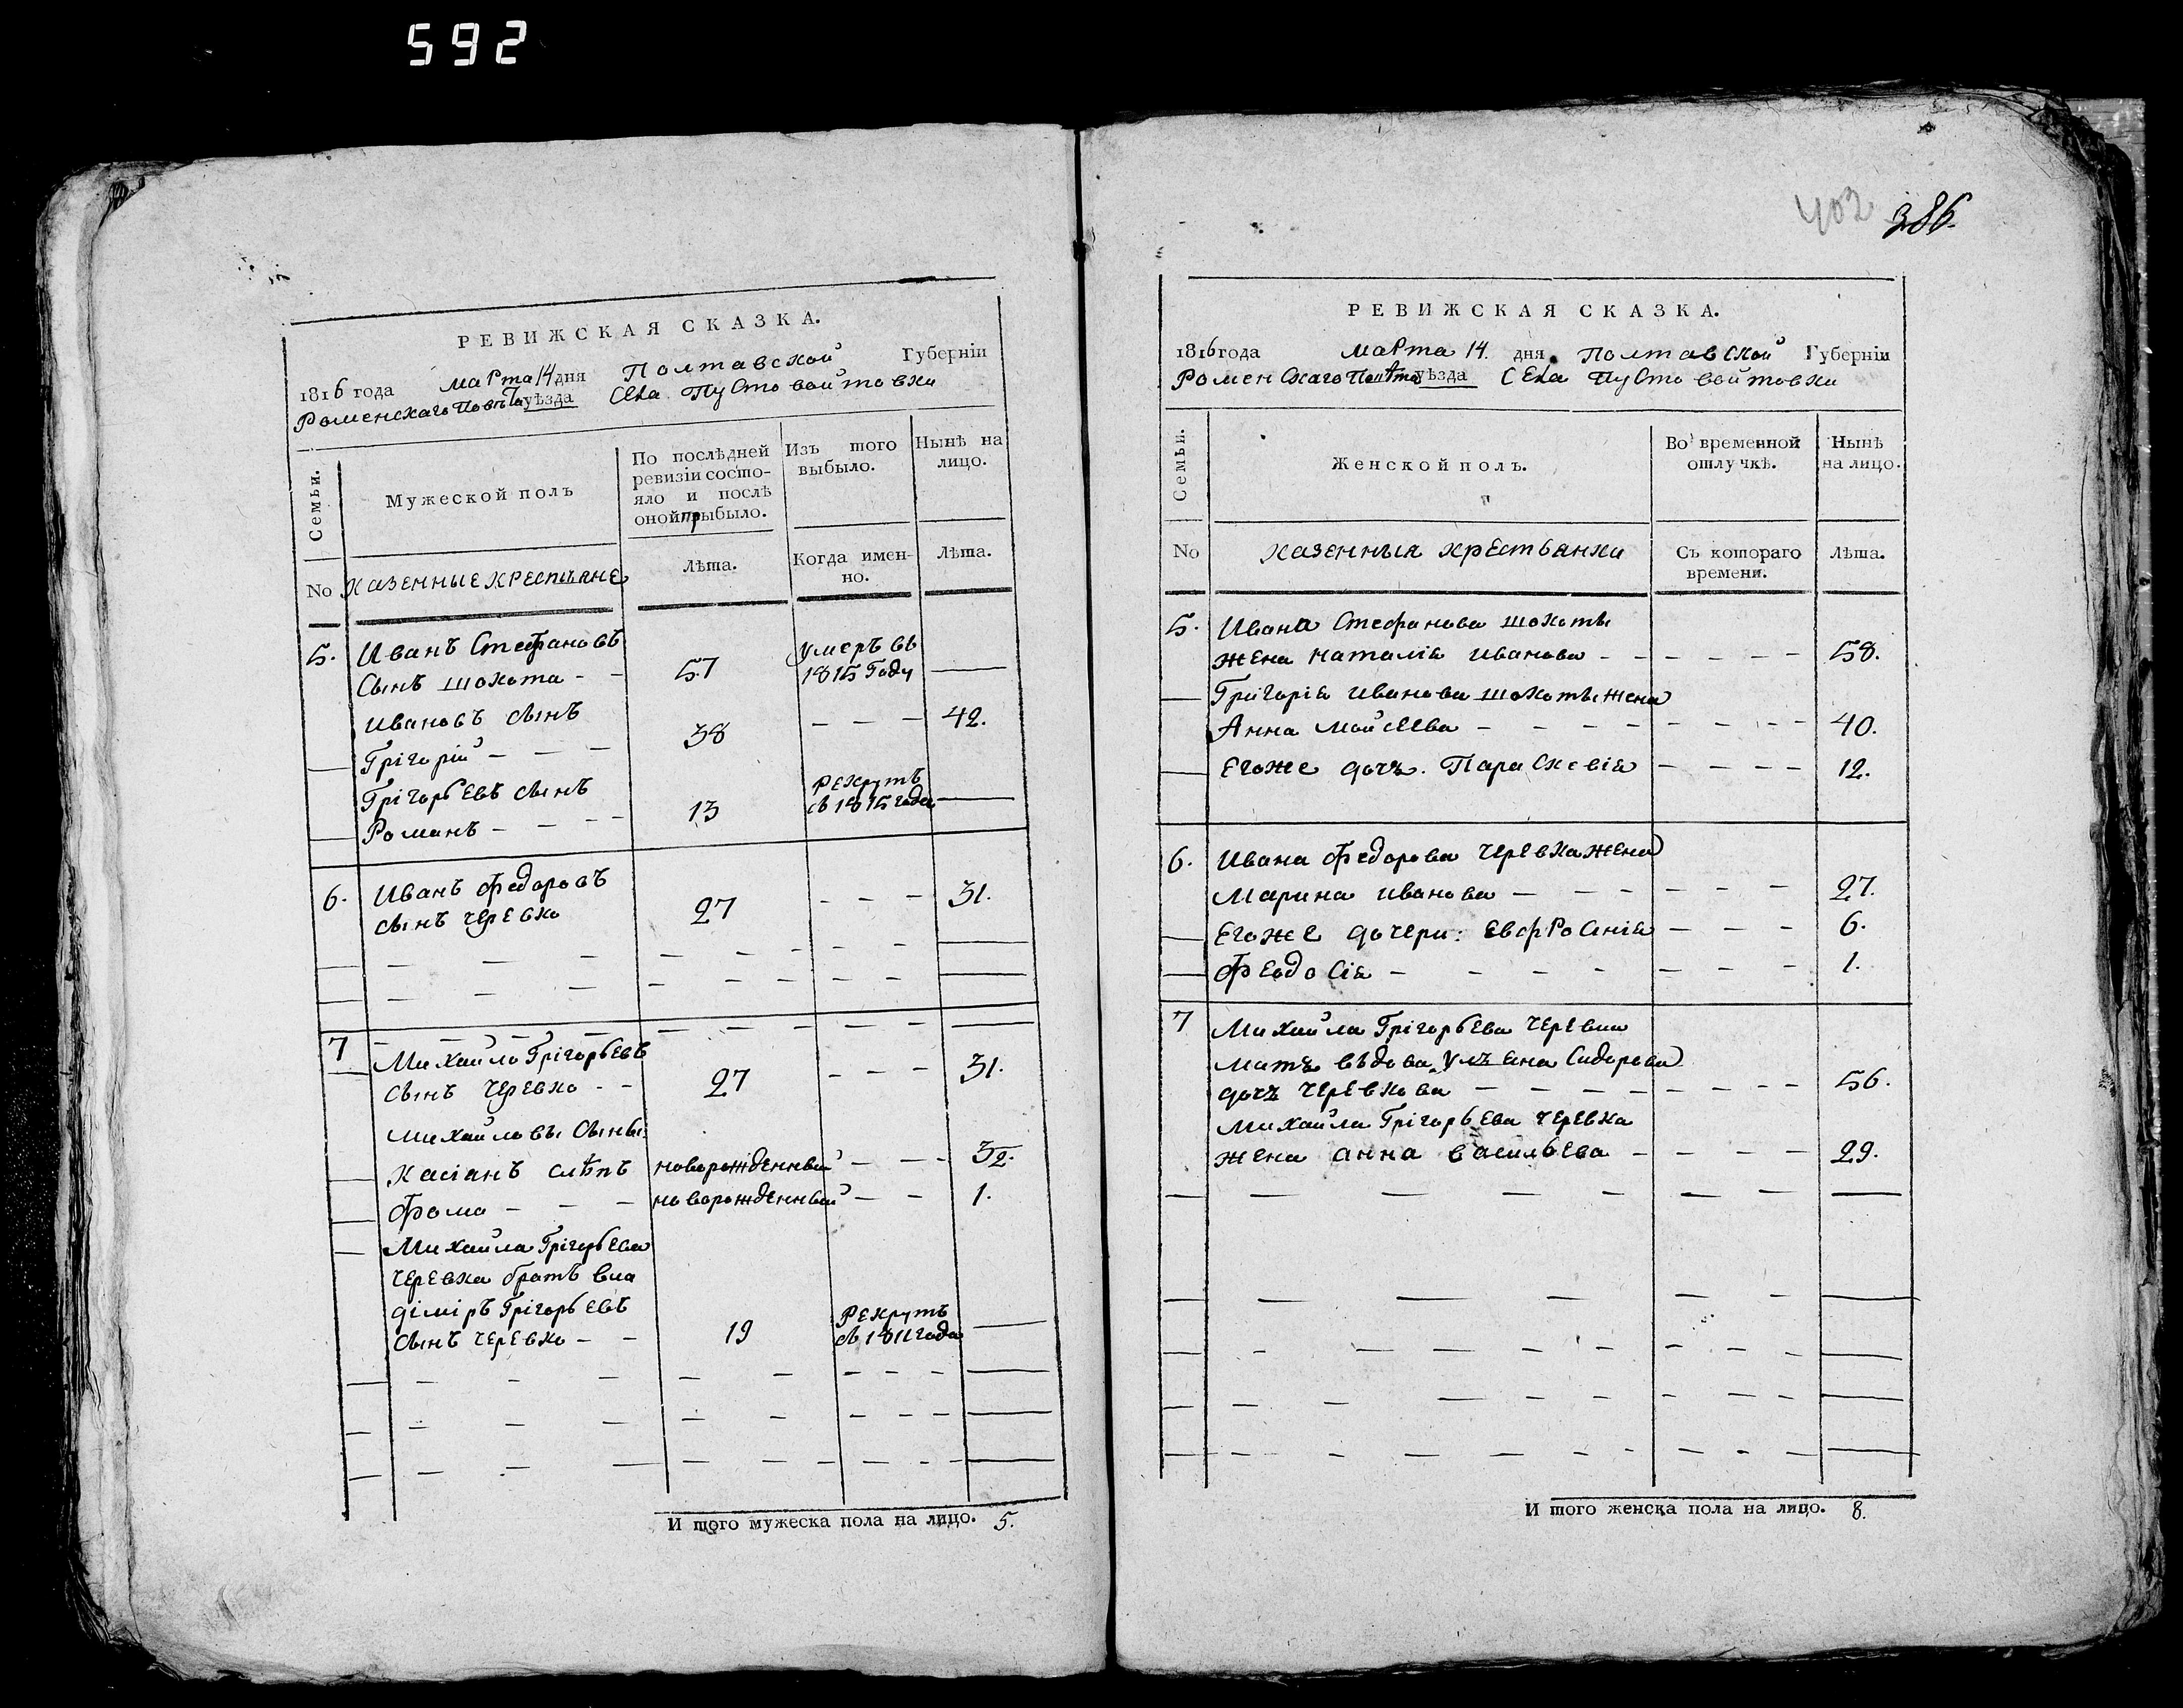 592
РЕВИЖСКАЯ СКАЗКА.
1816 года марта 14 дня Полтавской Губернiи
Роменскаго Повѣта уѣзда Села Пустовойтовки
Семьи.
Мужеской полъ
По послѣдней ревизiи состо-
яло и послѣ
оной прибыло.
Изъ того
выбыло.
Нынѣ на
лицо.
No
казенные крестьяне
Лѣта.
Когда имен-
но.
Лѣта.
5. Иванъ Стефановъ
сынъ шокота - - 57 умеръ въ 1815 году —
Ивановъ сынъ
Грiгорiй - - - 38 - - - 42.
Грiгорьевъ сынъ
Романъ - - - - 13 Рекрутъ съ 1815 года —
6. Иванъ Федоровъ
сынъ черевко 27 - - - 31.
7 Михайло Грiгорьевъ
сынъ черевко - - 27 - - - 31.
Михайловы сыны:
Касiанъ слѣпъ новорожденный - - - 3/2.
Фома - - - новорожденный - - 1.
Михайла Грiгорьева
черевка братъ вла
дiмiръ Грiгорьевъ
сынъ черевко - - 19 Рекрутъ съ 1811 года —
И того мужеска пола на лицо. 5.
402 386.
РЕВИЖСКАЯ СКАЗКА.
1816 года марта 14. дня Полтавской Губернiи
Роменскаго Повѣта уѣзда Села Пустовойтовки
Семьи.
Женской полъ.
Во временной
отлучкѣ.
Нынѣ
на лицо.
No
казенныя крестьянки
Съ котораго
времени.
Лѣта.
5. Ивана Стефанова шокоты
жена наталiя иванова - - - - - - 58.
Грiгорiя иванова шокоты жена
Анна мойсеева - - - - - - - - 40.
Егоже дочь. Параскевiя - - - - 12.
6. Ивана Федорова черевка жена
марина иванова - - - - - - - 27.
Егоже дочери: Евфросинiя - - - 6.
Феодосiя - - - - - - - - 1.
7 Михайла Грiгорьева черевка
мать въдова, ульяна Сидорова
дочь черевкова - - - - - - - - 56.
Михайла Грiгорьева черевка
жена анна васильева - - - - 29.
И того женска пола на лицо. 8.